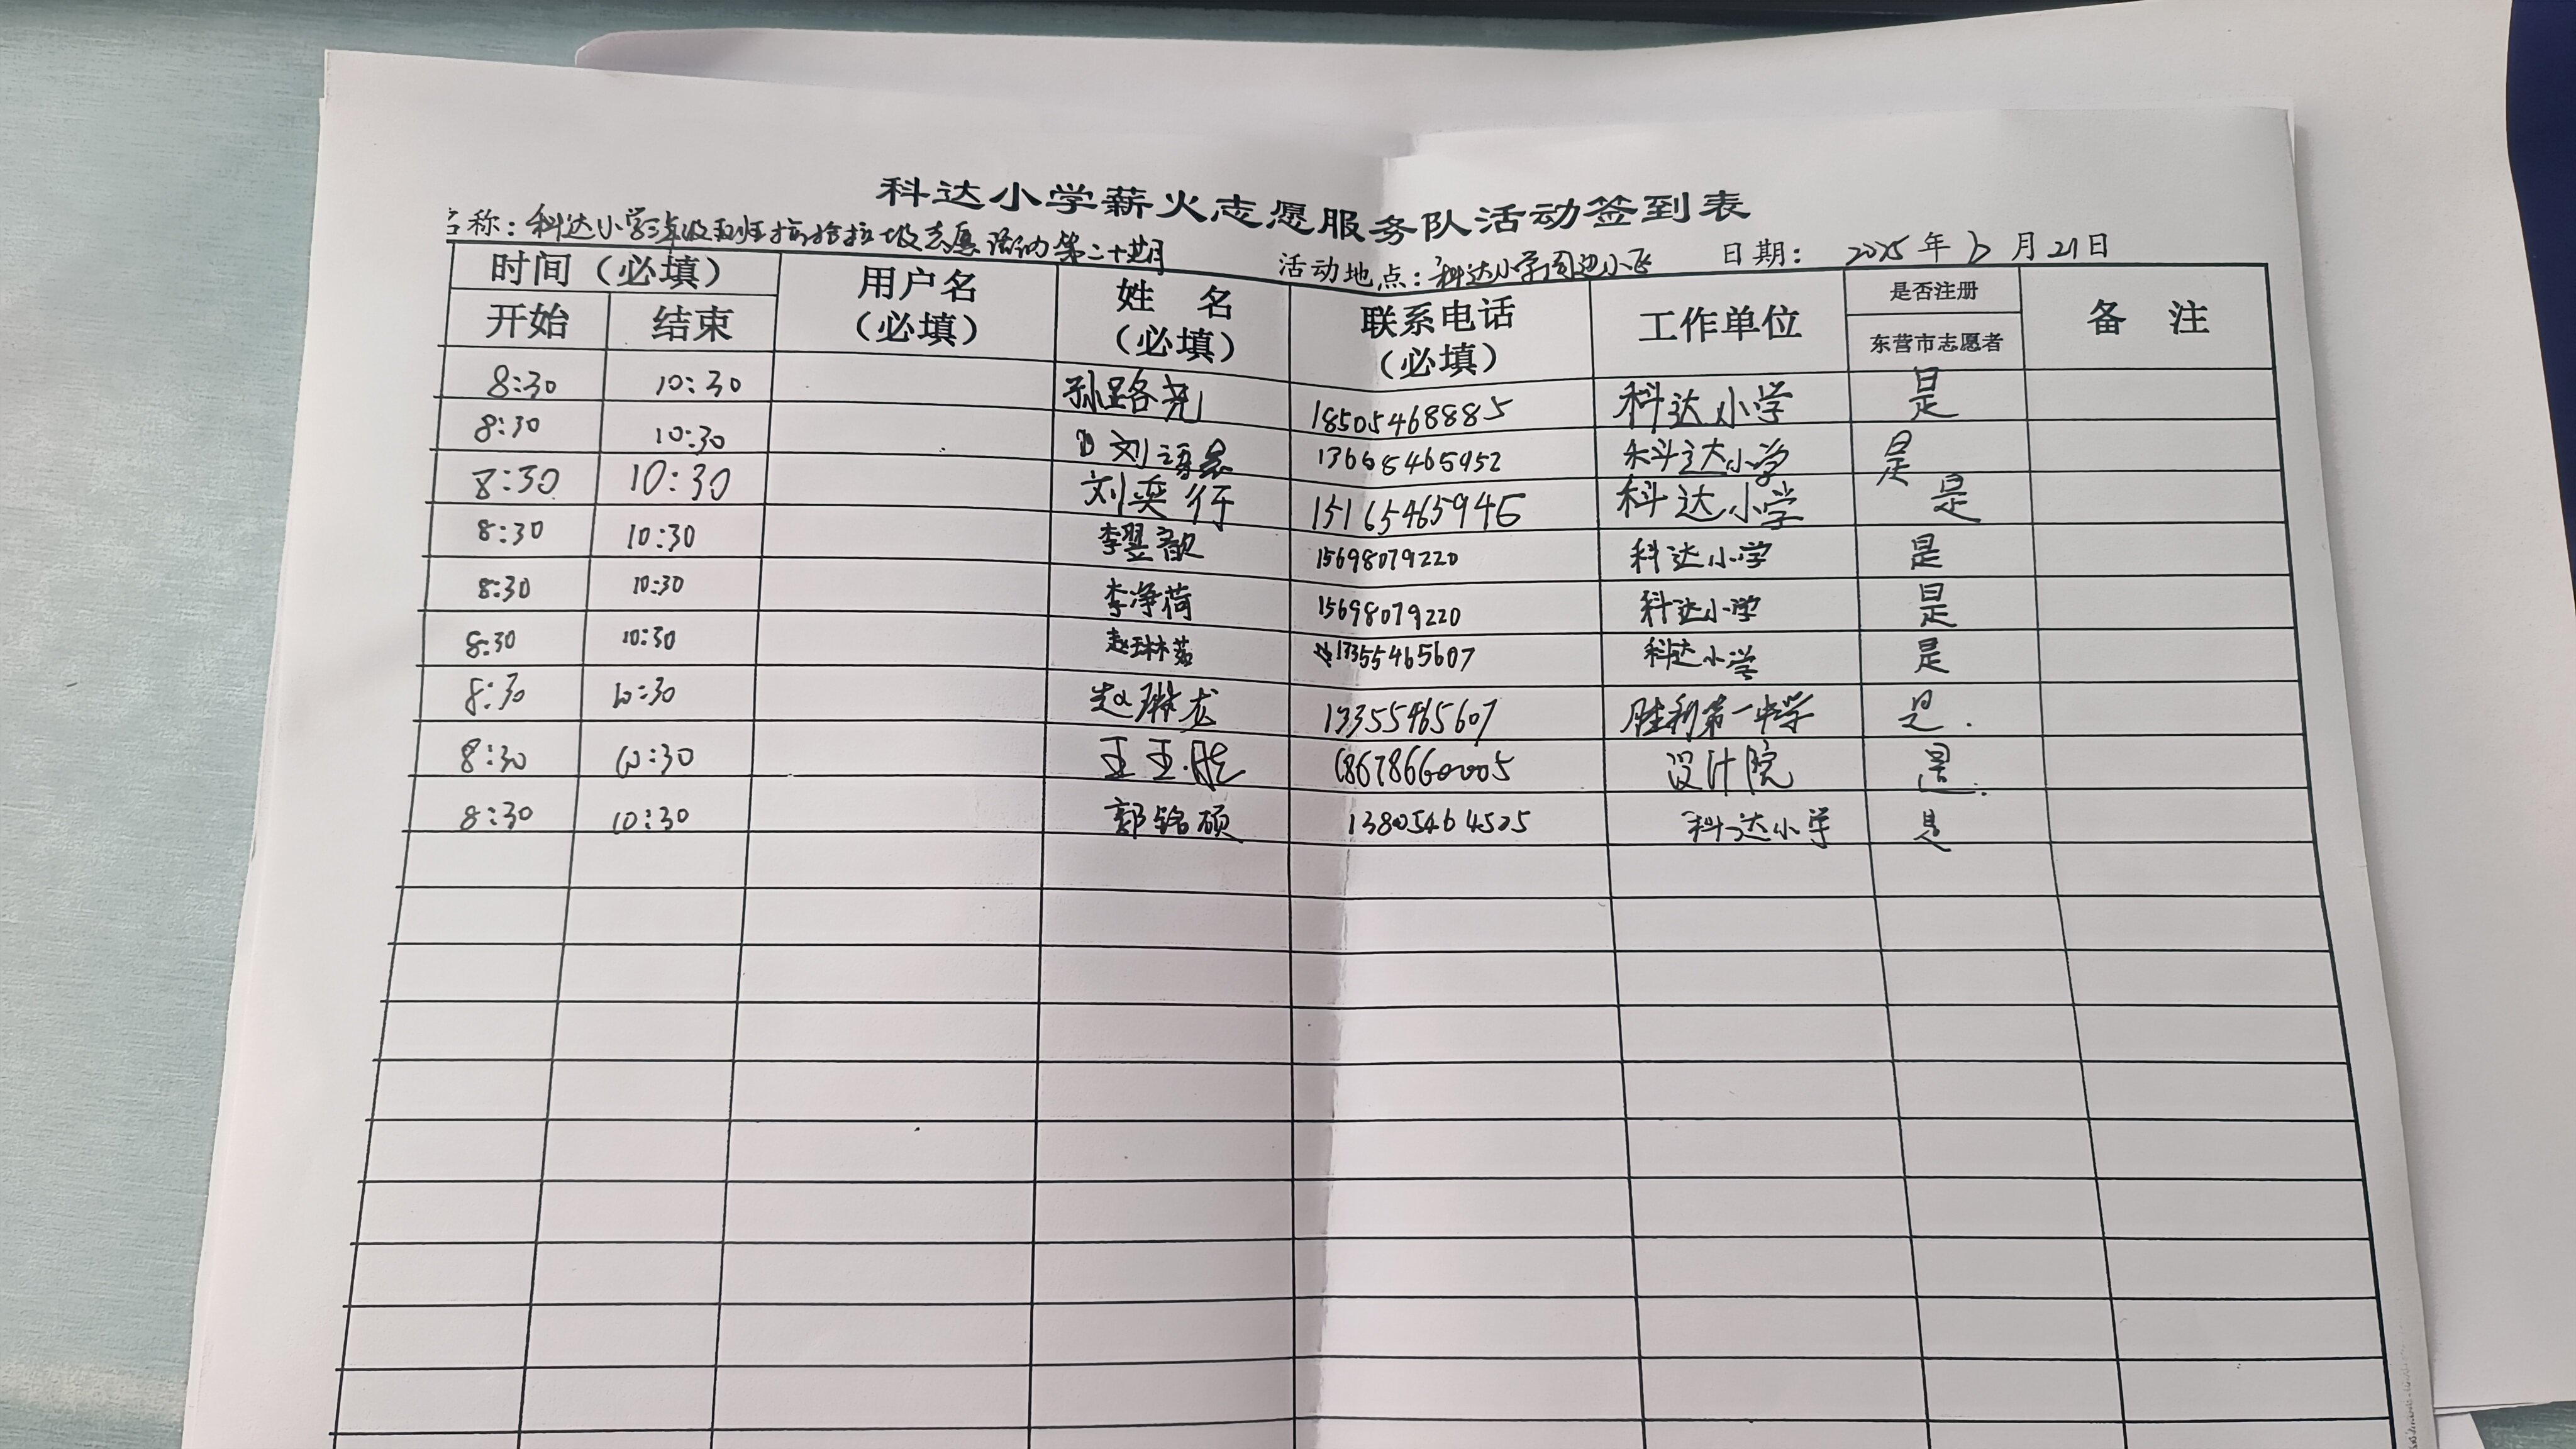 科达小学薪火志愿服务队活动签到表
名称：科达小学三年级五班捡拾垃圾志愿活动第二十期 活动地点：科达小学周边小区 日期： 2025 年 12 月 21 日
时间（必填） 用户名（必填） 姓 名（必填） 联系电话（必填） 工作单位 是否注册东营市志愿者 备 注
开始 结束
8:30 10:30 孙路尧 18505468885 科达小学 是
8:30 10:30 刘语 13668465952 科达小学 是
8:30 10:30 刘奕行 15165465946 科达小学 是
8:30 10:30 李翌歆 15698079220 科达小学 是
8:30 10:30 李净荷 15698079220 科达小学 是
8:30 10:30 赵琳茹 13355465607 科达小学 是
8:30 10:30 赵琳龙 13355465607 胜利第一中学 是.
8:30 10:30 王玉 18678660005 设计院 是.
8:30 10:30 郭铭硕 13805464525 科达小学 是